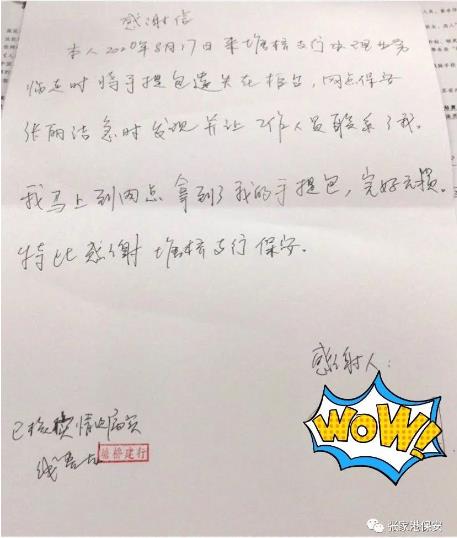 感谢信
本人2020年8月17日来塘桥支行办理业务
临走时将手提包遗失在柜台，网点保安
张丽洁急时发现并让工作人员联系了我。
我马上到网点拿到了我的手提包，完好无损。
特此感谢塘桥支行保安。
感谢人：
WOW!
已核实情况属实
塘桥建行
张家港保安